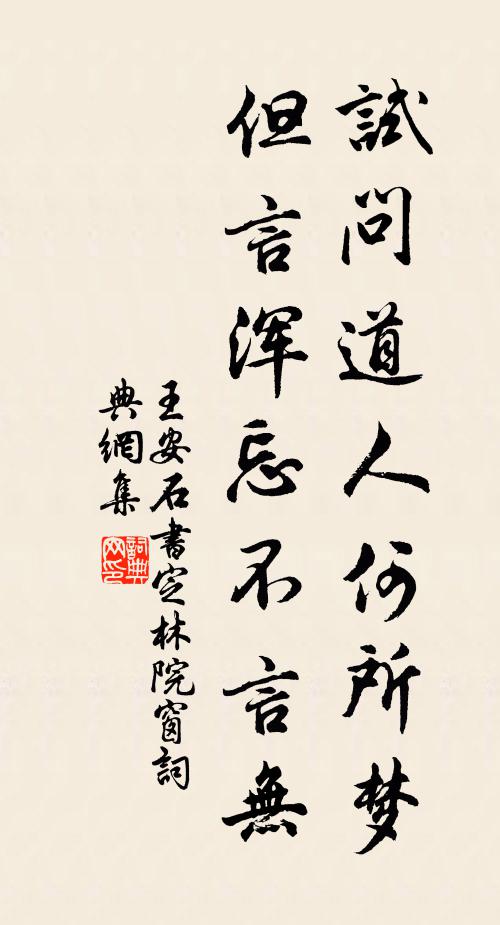 試問道人何所梦
但言浑忘不言無
王安石書定林院窗詞
典網集
詞典网印